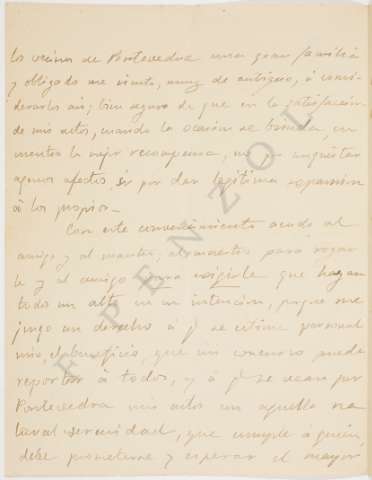 los vecinos de Pontevedra una gran familia
y obligado me siento, muy de antiguo, á consi-
derarlos así; bien seguro de que en la satisfacción
de mis actos, cuando la ocasión se brinda, en-
cuentro la mejor recompensa, no por
agenos afectos, si por dar legítima expansión
á los propios.
Con este convencimiento acudo al
amigo y al maestro; al maestro para rogar-
le y al amigo para exigirle que hagan
todos un alto en su intención, pues me
juzgo con derecho á q. se estime personal
mio, el beneficio, que un concurso puede
reportar á todos, y á q. se vean por
Pontevedra mis actos con aquella na-
tural serenidad, que cumple á quien
debe prometerse y esperar el mayor
F. PENZOL